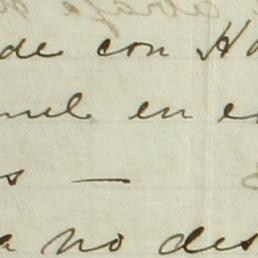 de con Ha
nel en e
s —
a no des